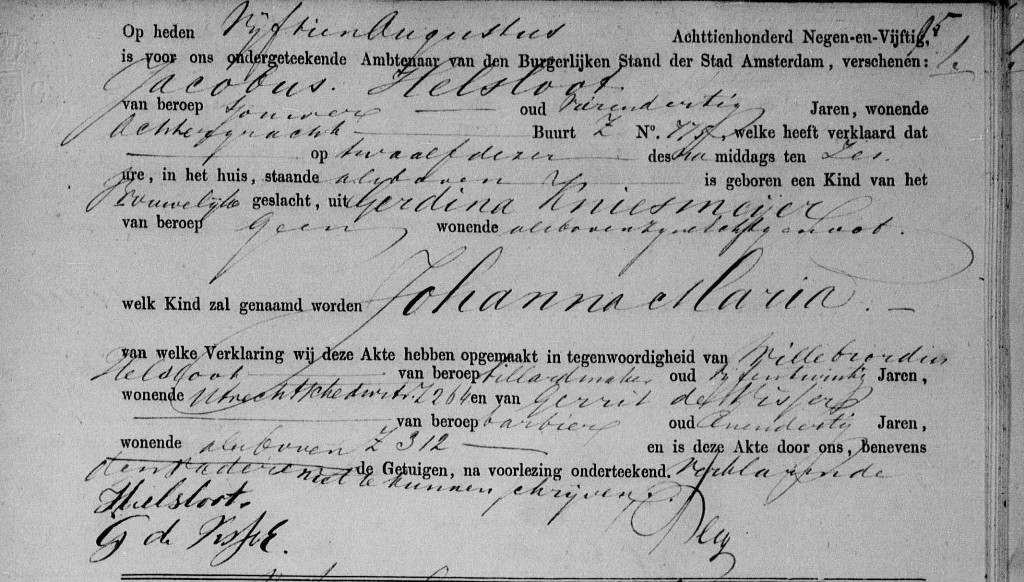 Op heden Vijftien Augustus Achttienhonderd Negen-en-Vijftig,
is voor ons ondergeteekende Ambtenaar van den Burgerlijken Stand der Stad Amsterdam, verschenen:
Jacobus. Helsloot
van beroep sjouwer oud vierendertig Jaren, wonende
Achtergracht Buurt Z No. , welke heeft verklaard dat
op twaalf dezer des na middags ten Zes
ure, in het huis, staande alsboven is geboren een Kind van het
Vrouwelijk geslacht, uit Gerdina Kniesmeijer
van beroep Geen wonende alsboven zyn echtgenoot.
welk Kind zal genaamd worden Johanna Maria.
van welke Verklaring wij deze Akte hebben opgemaakt in tegenwoordigheid van Willebrordus
Helsloot van beroep billardmaker oud vyfentwintig Jaren,
wonende Utrechtschedwstr Z 264 en van Gerrit de Visser
van beroep barbier oud Jaren,
wonende alsboven Z 312 en is deze Akte door ons, benevens
de Getuigen, na voorlezing onderteekend. Verklarende
niet te kunnen schrijven.
Helsloot.
G de Visser.